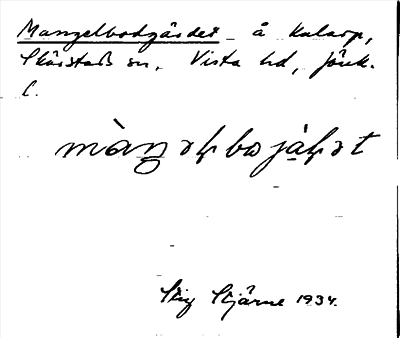 Mangelbodgärdet å Kalarp,
Skärstads sn, Vista hd, Jönk.
L.
Stig Stjärne 1934.